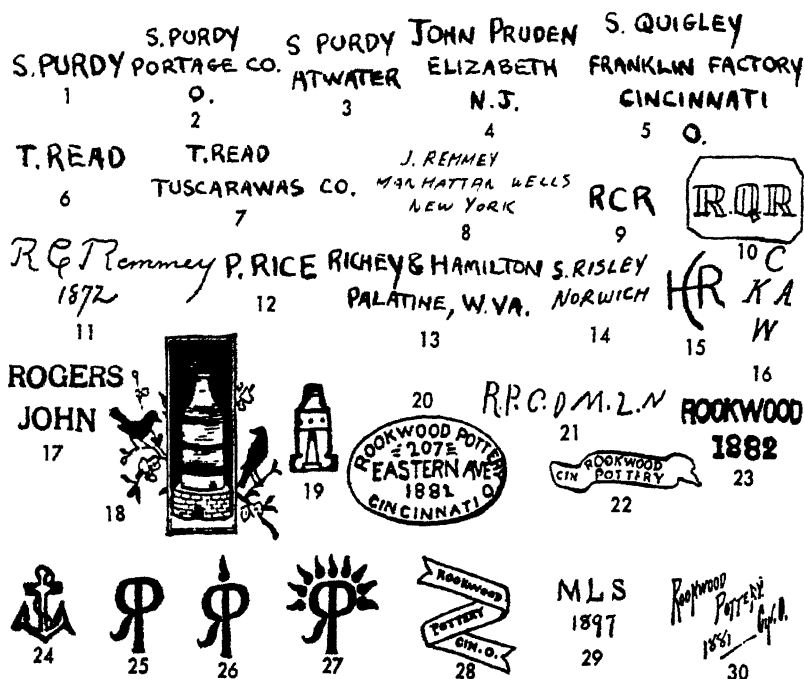 S. PURDY
1
S. PURDY
PORTAGE CO.
O.
2
S PURDY
ATWATER
3
JOHN PRUDEN
ELIZABETH
N.J.
4
S. QUIGLEY
FRANKLIN FACTORY
CINCINNATI
O.
5
T. READ
6
T. READ
TUSCARAWAS CO.
7
J. REMMEY
MANHATTAN WELLS
NEW YORK
8
RCR
9
R.Q.R
10
R C Remmey
1872
11
P. RICE
12
RICHEY & HAMILTON
PALATINE, W.VA.
13
S. RISLEY
NORWICH
14
HR
15
C
K A
W
16
ROGERS
JOHN
17
18
19
20
ROOKWOOD POTTERY
=207=
EASTERN AVE
1882
CINCINNATI O
R.P.C.O M.L.N
21
CIN ROOKWOOD
POTTERY
22
ROOKWOOD
1882
23
24
RP
25
RP
26
RP
27
ROOKWOOD
POTTERY
CIN. O.
28
MLS
1897
29
Rookwood
Pottery
1881 Cin. O.
30